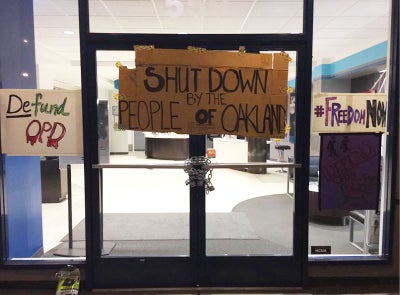 SHUT DOWN
BY THE
PEOPLE OF OAKLAND
Defund
OPD
#FREEDOM NOW